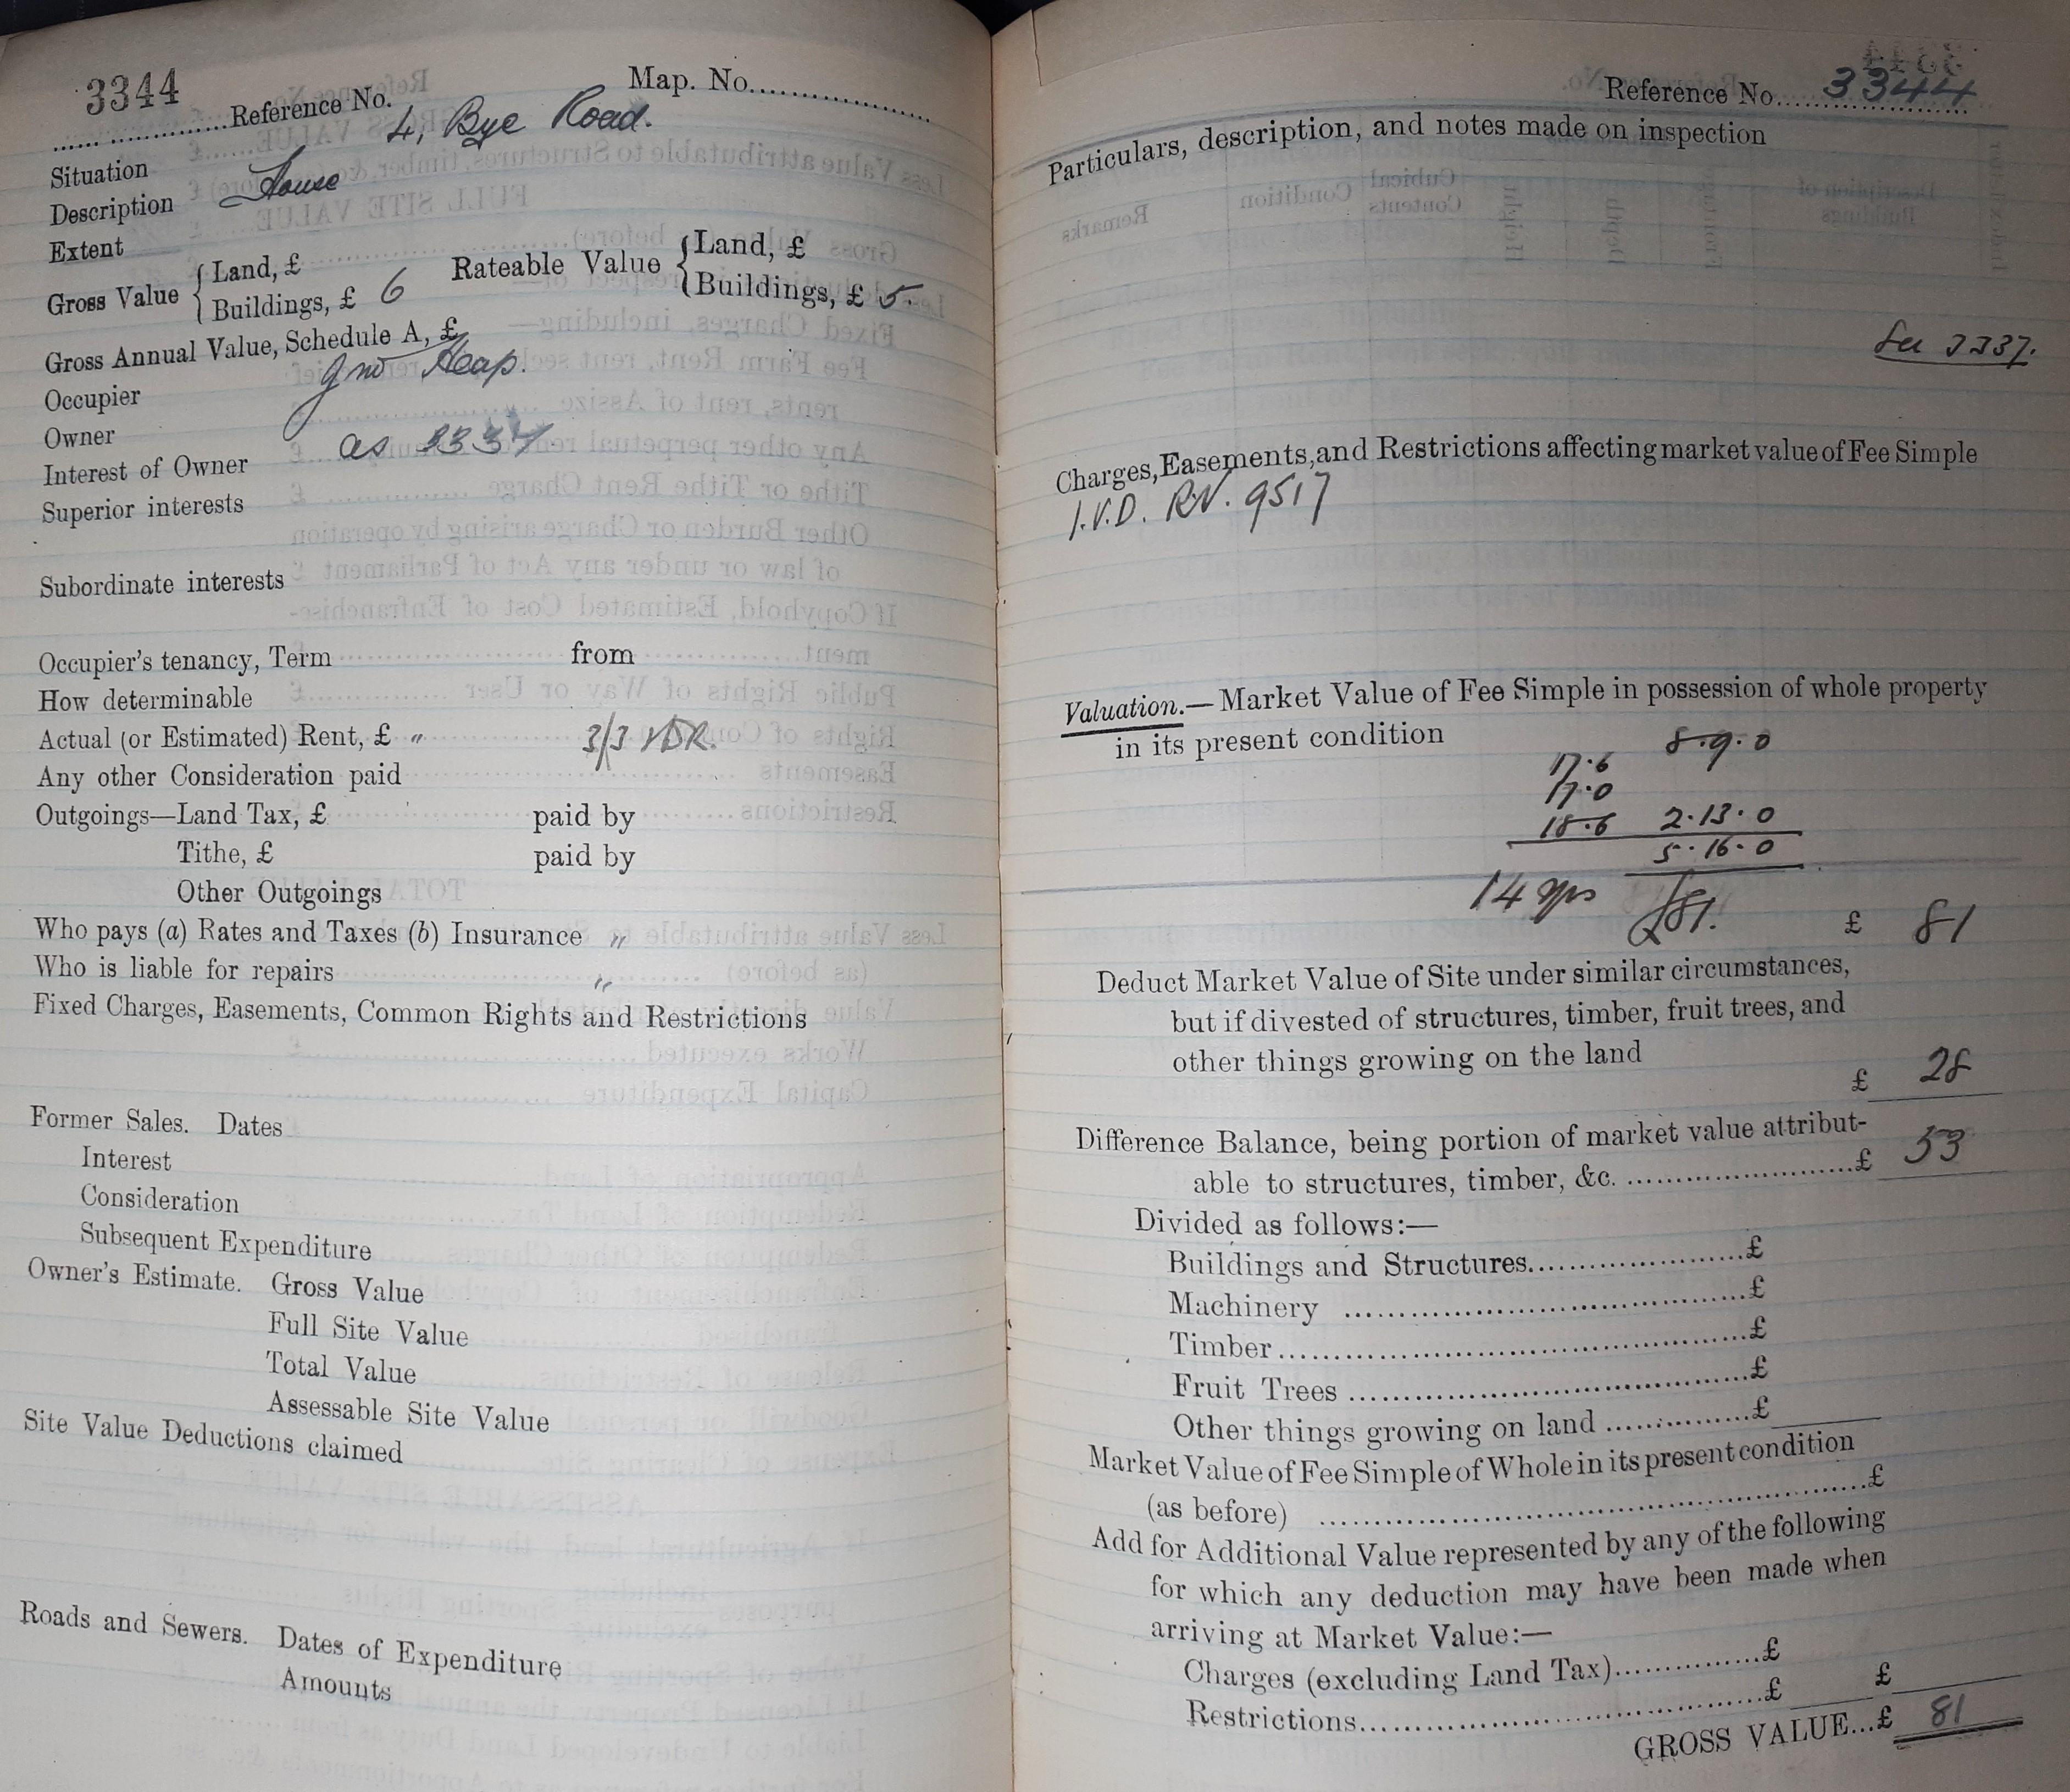 3344
Reference No. Map. No.
Situation 4, Bye Road.
Description House
Extent
Gross Value { Land, £ Rateable Value { Land, £
Buildings, £ 6 Buildings, £ 5.
Gross Annual Value, Schedule A, £
Occupier Jno Heap.
Owner
Interest of Owner as 3337
Superior interests
Subordinate interests
Occupier's tenancy, Term from
How determinable
Actual (or Estimated) Rent, £ " 3/3
Any other Consideration paid
Outgoings—Land Tax, £ paid by
Tithe, £ paid by
Other Outgoings
Who pays (a) Rates and Taxes (b) Insurance "
Who is liable for repairs "
Fixed Charges, Easements, Common Rights and Restrictions
Former Sales. Dates
Interest
Consideration
Subsequent Expenditure
Owner's Estimate. Gross Value
Full Site Value
Total Value
Assessable Site Value
Site Value Deductions claimed
Roads and Sewers. Dates of Expenditure
Amounts
Reference No. 3344
Particulars, description, and notes made on inspection
See 3337.
Charges, Easements, and Restrictions affecting market value of Fee Simple
I.V.D. R.N. 9517
Valuation.—Market Value of Fee Simple in possession of whole property
in its present condition 8.9.0
17.6
17.0
18.6 2.13.0
5.16.0
14 yps £81. £ 81
Deduct Market Value of Site under similar circumstances,
but if divested of structures, timber, fruit trees, and
other things growing on the land
£ 28
Difference Balance, being portion of market value attribut-
able to structures, timber, &c. £ 53
Divided as follows:—
Buildings and Structures £
Machinery £
Timber £
Fruit Trees £
Other things growing on land £
Market Value of Fee Simple of Whole in its present condition
(as before) £
Add for Additional Value represented by any of the following
for which any deduction may have been made when
arriving at Market Value:—
Charges (excluding Land Tax) £
Restrictions £ £
GROSS VALUE...£ 81